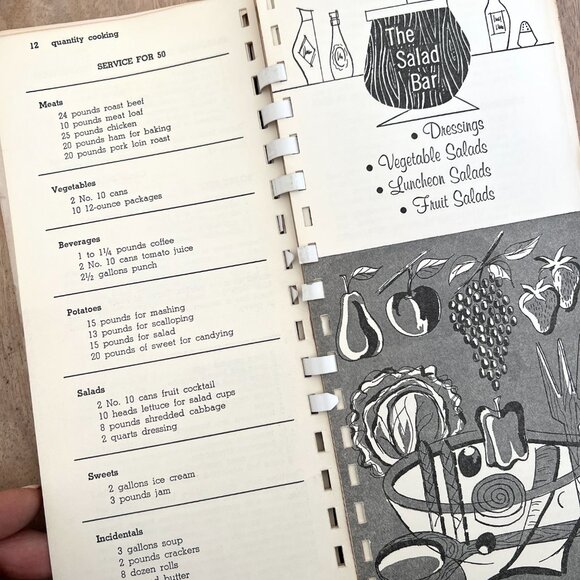 12 quantity cooking
SERVICE FOR 50
Meats
24 pounds roast beef
10 pounds meat loaf
25 pounds chicken
20 pounds ham for baking
20 pounds pork loin roast
Vegetables
2 No. 10 cans
10 12-ounce packages
Beverages
1 to 1¼ pounds coffee
2 No. 10 cans tomato juice
2½ gallons punch
Potatoes
15 pounds for mashing
13 pounds for scalloping
15 pounds for salad
20 pounds of sweet for candying
Salads
2 No. 10 cans fruit cocktail
10 heads lettuce for salad cups
8 pounds shredded cabbage
2 quarts dressing
Sweets
2 gallons ice cream
3 pounds jam
Incidentals
3 gallons soup
2 pounds crackers
8 dozen rolls
butter
The
Salad
Bar
• Dressings
• Vegetable Salads
• Luncheon Salads
• Fruit Salads